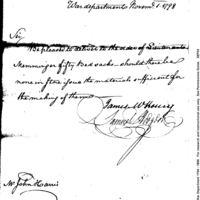 War department Novem. 1. 1798
Sir,
Be pleased to deliver to the order of Lieutenant
Memminger fifty Bed sacks. should there be
none in store issue the materials sufficient for
the making of them
James McHenry
Samuel Hodgdon
Mr John Harris